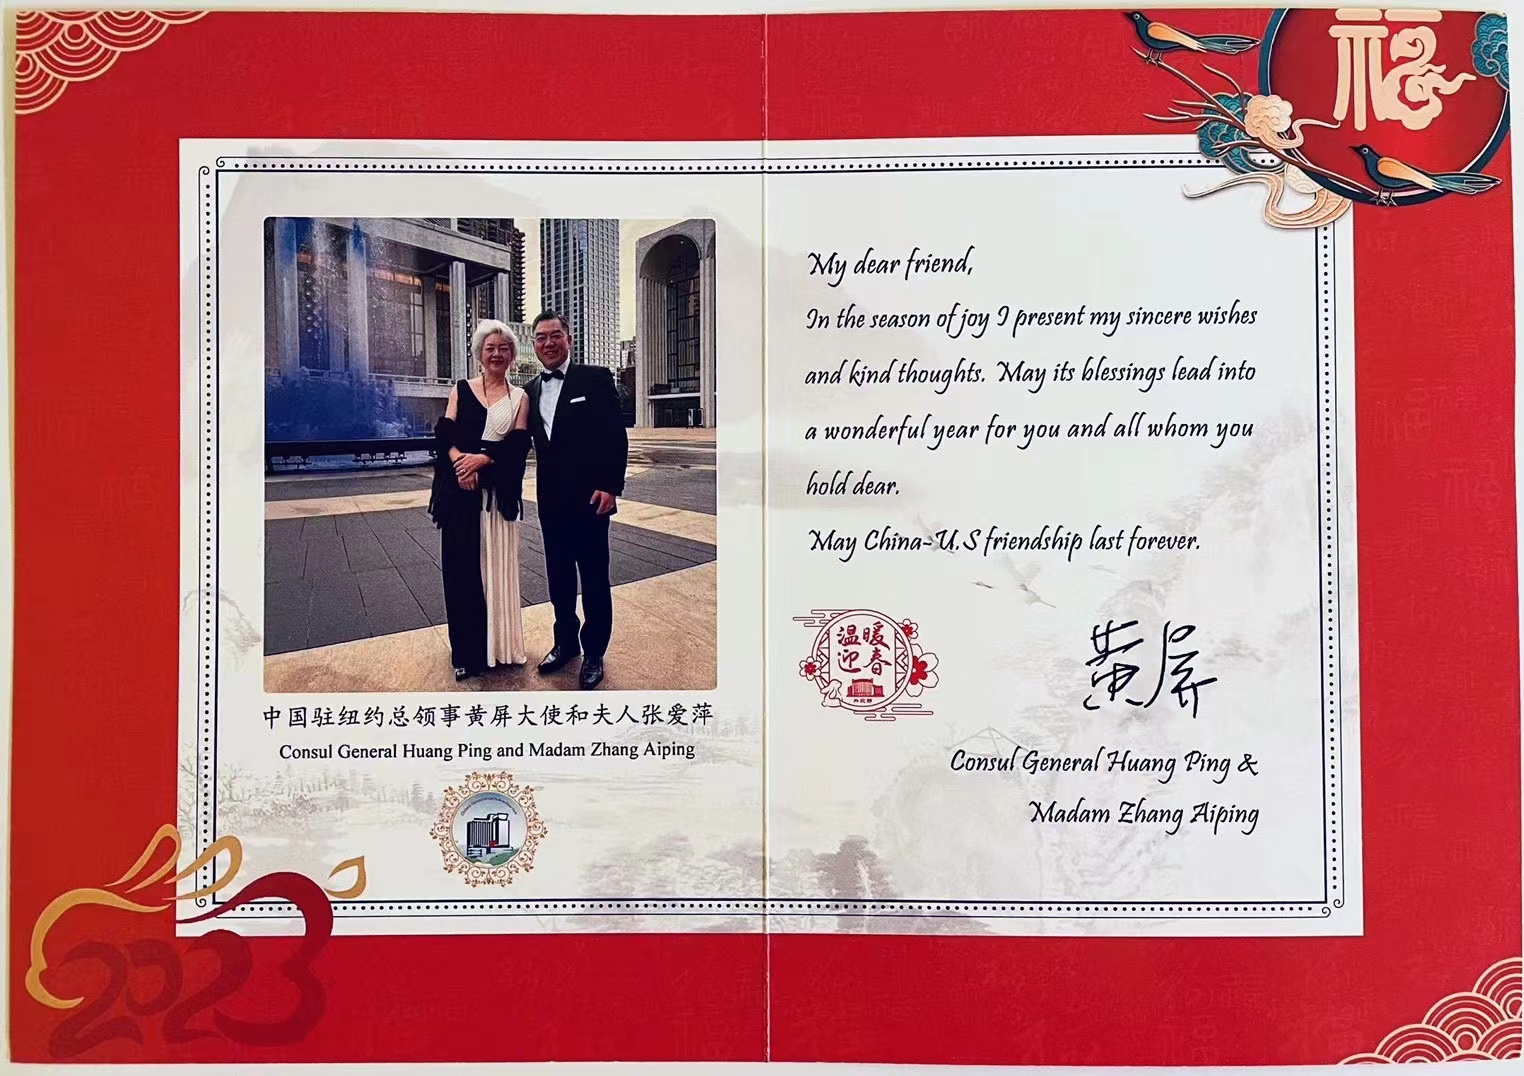 福
My dear friend,
In the season of joy I present my sincere wishes
and kind thoughts. May its blessings lead into
a wonderful year for you and all whom you
hold dear.
May China-U.S friendship last forever.
温暖
迎春
黄屏
Consul General Huang Ping &
Madam Zhang Aiping
中国驻纽约总领事黄屏大使和夫人张爱萍
Consul General Huang Ping and Madam Zhang Aiping
2023